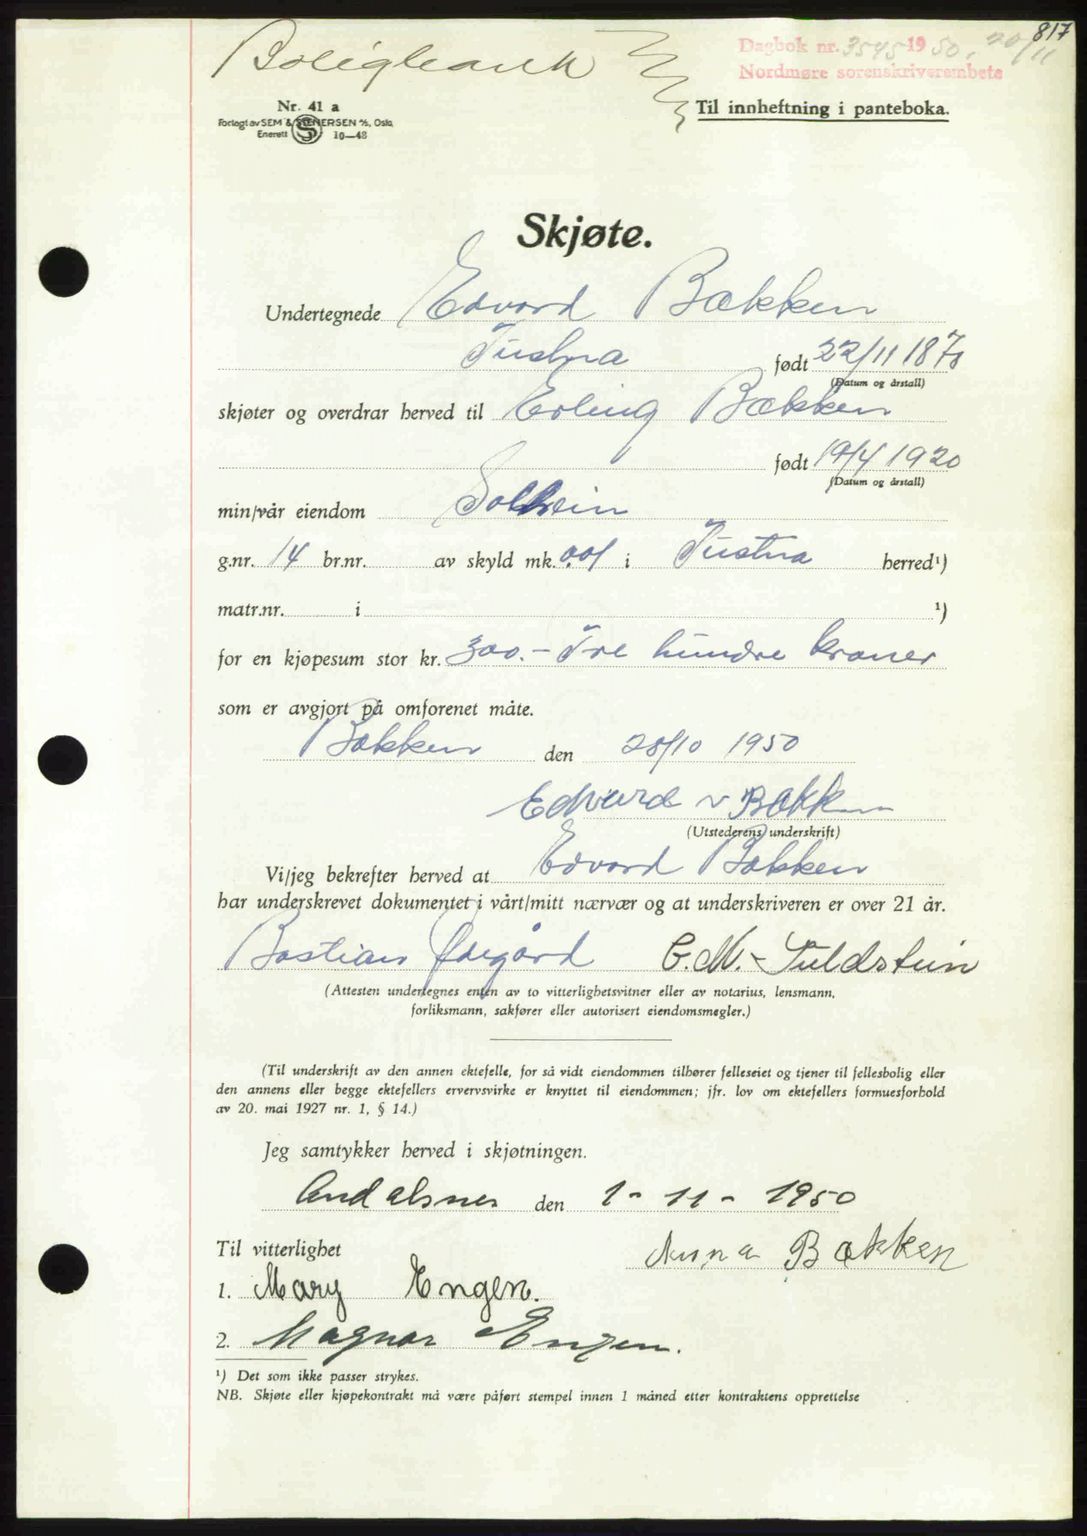 817
Boligbank
Dagbok nr. 3545 1950. 20/11
Nordmøre sorenskriverembete
Nr. 41 a
Forlagt av SEM & STENERSEN A/S, Oslo
Enerett S 10—48
Til innheftning i panteboka.
Skjøte.
Undertegnede Edvard Bækken
Tustna født 22/11 1870
(Datum og årstall)
skjøter og overdrar herved til Erling Bækken
født 19/4 1920
(Datum og årstall)
min/vår eiendom
g.nr. 14 br.nr. av skyld mk. 0.01 i Tustna herred¹)
matr.nr. i ¹)
for en kjøpesum stor kr. 300.- Tre hundre kroner
som er avgjort på omforenet måte.
Bækken den 28/10 1950
Edvard Bækken
(Utstederens underskrift)
Vi/jeg bekrefter herved at Edvard Bækken
har underskrevet dokumentet i vårt/mitt nærvær og at underskriveren er over 21 år.
Bastian Ødegård C.M. Suldstein
(Attesten undertegnes enten av to vitterlighetsvitner eller av notarius, lensmann,
forliksmann, sakfører eller autorisert eiendomsmegler.)
(Til underskrift av den annen ektefelle, for så vidt eiendommen tilhører felleseiet og tjener til fellesbolig eller
den annens eller begge ektefellers ervervsvirke er knyttet til eiendommen; jfr. lov om ektefellers formuesforhold
av 20. mai 1927 nr. 1, § 14.)
Jeg samtykker herved i skjøtningen.
Åndalsnes den 1-11-1950
Til vitterlighet Anna Bækken
1. Mary Engen.
2. Magnar Engen.
¹) Det som ikke passer strykes.
NB. Skjøte eller kjøpekontrakt må være påført stempel innen 1 måned etter kontraktens opprettelse